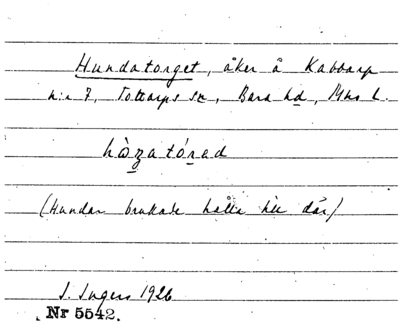 Hundatorget, åker å Kabbarp
n:r 7, Tottarps sn, Bara hd, Mhs l.
hò̱natóṟad
(Hundar brukade hålla till där)
I. Ingers 1926
Nr 5542.